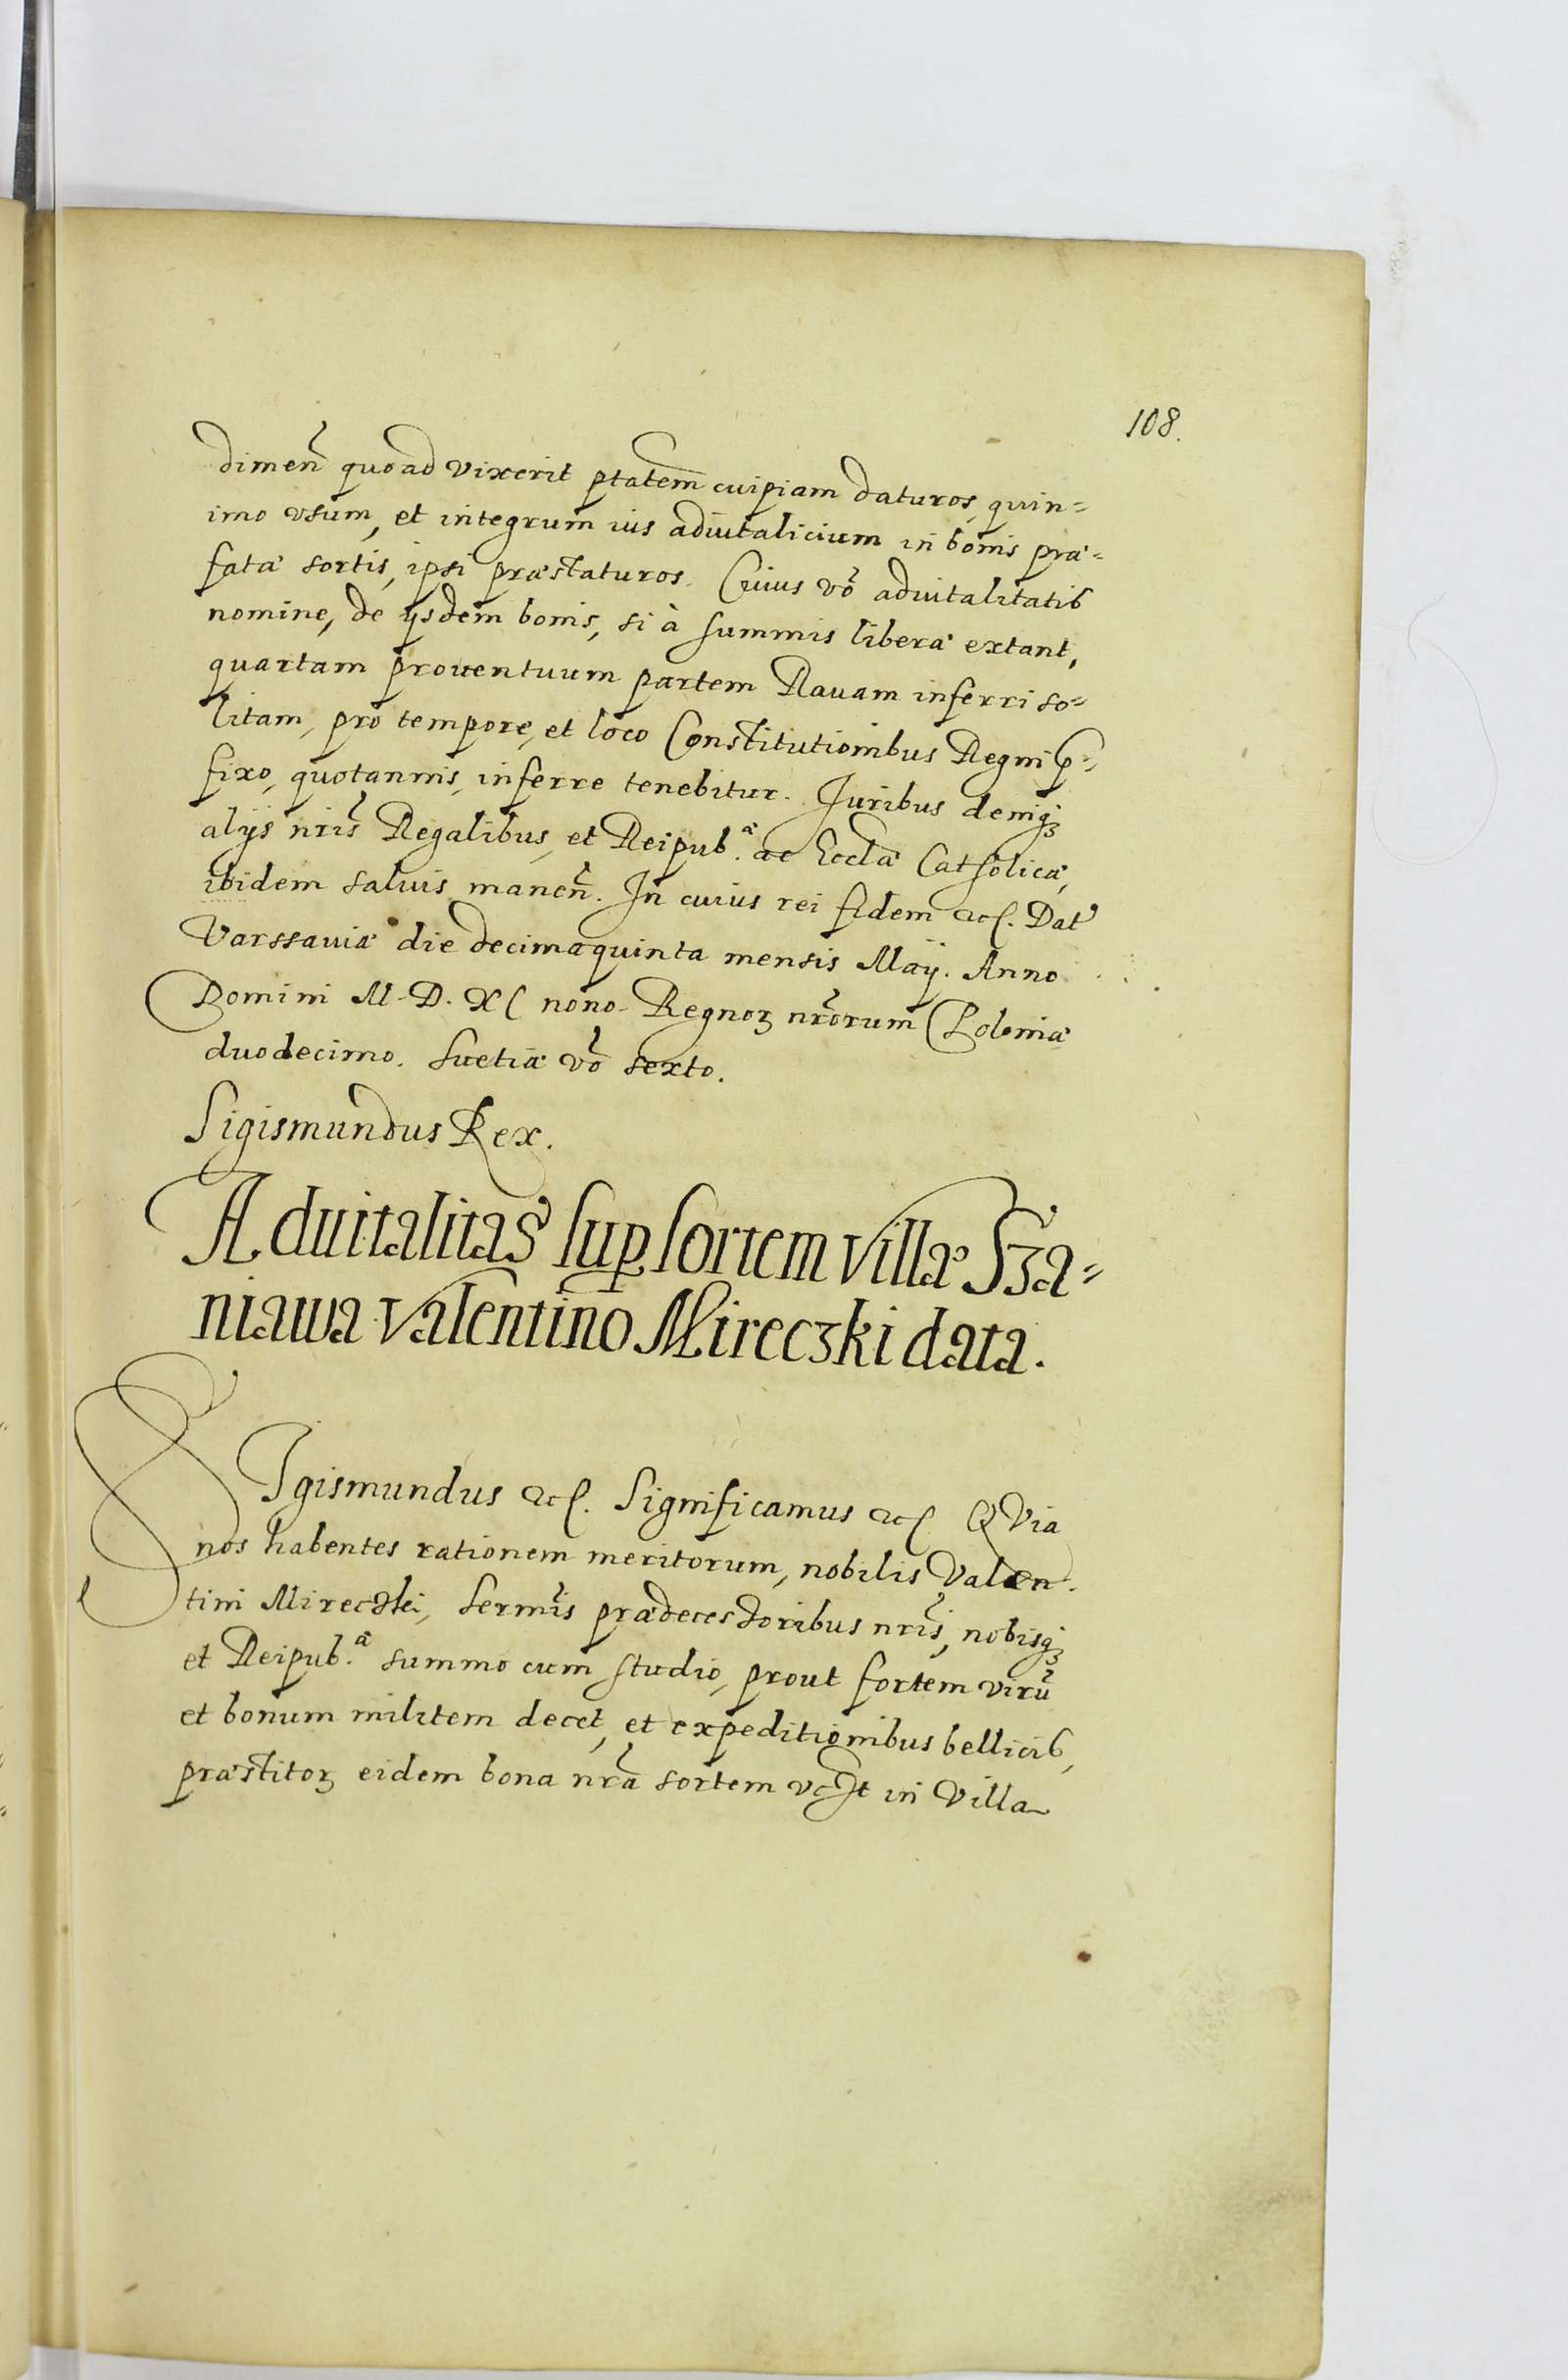 108.
dimeñ quoad vixerit ptatem̃ cuipiam daturos, quin=
imo vsum, et integrum ius aduitalicium in bonis præ=
fatæ sortis, ipsi præstaturos. Cuius võ aduitalitatis
nomine, de ijsdem bonis, si à summis libera extant,
quartam prouentuum partem Rauam inferri so=
litam, pro tempore, et loco Constitutionibus Regni p̄=
fixo, quotannis, inferre tenebitur. Juribus deniqȝ
alijs nr̃is Regalibus, et Reipub.æ ac Eccl̃æ Catholicæ,
ibidem saluis maneñ. In cuius rei fidem etc. Dat
Varssauiæ die decimaquinta mensis Maij. Anno
Domini M. D. XC nono. Regnoꝝ nr̃orum Poloniæ
duodecimo. Suetiæ võ sexto.
Sigismundus Rex.
Aduitalitas sup̱ sortem villæ Sza=
niawa Valentino Mireczki data.
SIgismundus etc. Significamus etc. QVia
nos habentes rationem meritorum, nobilis Valen=
tini Mireczki, Serm̃is prædecessoribus nr̃is, nobisqȝ
et Reipub.æ summo cum studio, prout fortem virũ
et bonum militem decet, et expeditionibus bellicis,
præstitoꝝ eidem bona nr̃a sortem vꝫt in Villa